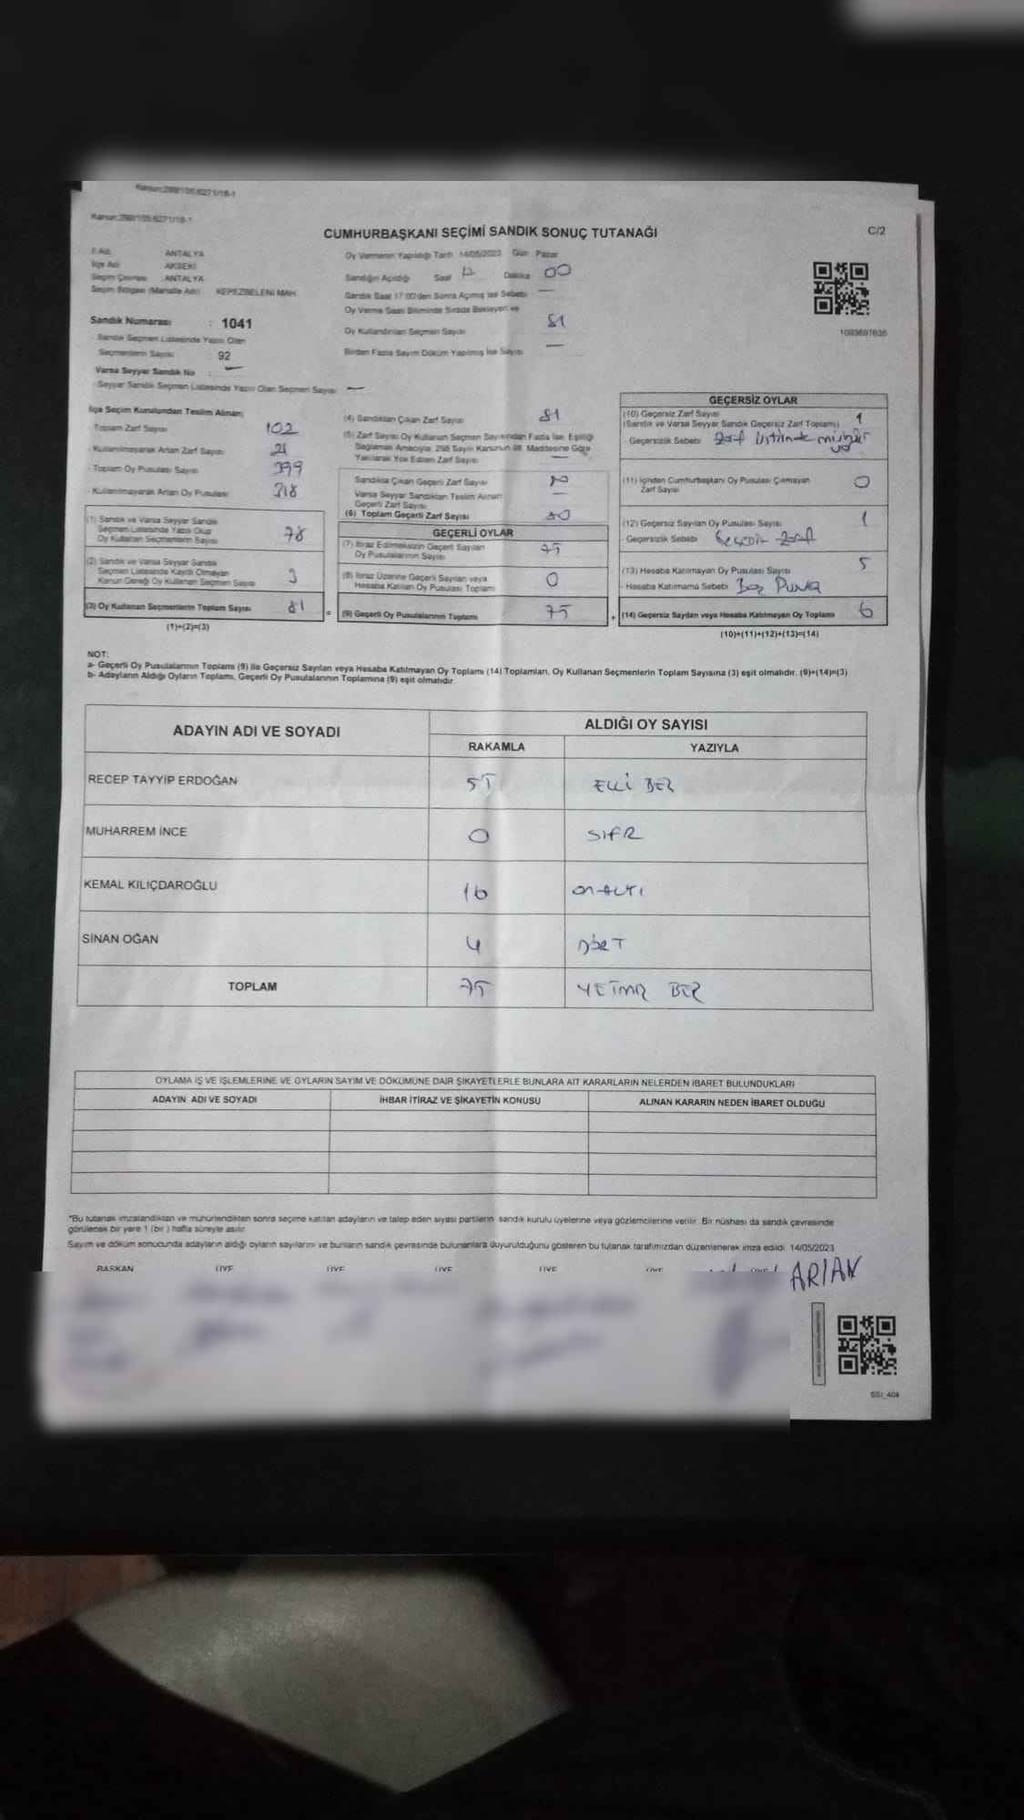 CUMHURBAŞKANI SEÇİMİ SANDIK SONUÇ TUTANAĞI
C/2
İl Adı ANTALYA
İlçe Adı AKSEKİ
Seçim Çevresi ANTALYA
Seçim Bölgesi (Mahalle Adı) KEPEZBELENİ MAH.
Sandık Numarası : 1041
Sandık Seçmen Listesinde Yazılı Olan
Seçmenlerin Sayısı 92
Varsa Seyyar Sandık No : —
Seyyar Sandık Seçmen Listesinde Yazılı Olan Seçmen Sayısı —
Oy Vermenin Yapıldığı Tarih 14/05/2023 Gün Pazar
Sandığın Açıldığı Saat 17 Dakika 00
Sandık Saat 17:00'den Sonra Açılmış İse Sebebi —
Oy Verme Saati Bitiminde Sırada Bekleyen ve
Oy Kullandırılan Seçmen Sayısı 81
Birden Fazla Sayım Döküm Yapılmış İse Sayısı —
İlçe Seçim Kurulundan Teslim Alınan;
- Toplam Zarf Sayısı 102
- Kullanılmayarak Artan Zarf Sayısı 21
- Toplam Oy Pusulası Sayısı 399
- Kullanılmayarak Artan Oy Pusulası 318
(1) Sandık ve Varsa Seyyar Sandık
Seçmen Listesinde Yazılı Olup
Oy Kullanan Seçmenlerin Sayısı 78
(2) Sandık ve Varsa Seyyar Sandık
Seçmen Listesinde Kayıtlı Olmayan
Kanun Gereği Oy Kullanan Seçmen Sayısı 3
(3) Oy Kullanan Seçmenlerin Toplam Sayısı 81 =
(1)+(2)=(3)
(4) Sandıktan Çıkan Zarf Sayısı 81
(5) Zarf Sayısı Oy Kullanan Seçmen Sayısından Fazla İse, Eşitliği
Sağlamak Amacıyla 298 Sayılı Kanunun 98. Maddesine Göre
Yakılarak Yok Edilen Zarf Sayısı —
Sandıkta Çıkan Geçerli Zarf Sayısı 80
Varsa Seyyar Sandıktan Teslim Alınan
Geçerli Zarf Sayısı —
(6) Toplam Geçerli Zarf Sayısı 80
GEÇERLİ OYLAR
(7) İtiraz Edilmeksizin Geçerli Sayılan
Oy Pusulalarının Sayısı 75
(8) İtiraz Üzerine Geçerli Sayılan veya
Hesaba Katılan Oy Pusulası Toplamı 0
(9) Geçerli Oy Pusulalarının Toplamı 75 +
GEÇERSİZ OYLAR
(10) Geçersiz Zarf Sayısı 1
(Sandık ve Varsa Seyyar Sandık Geçersiz Zarf Toplamı)
Geçersizlik Sebebi Zarf üstünde mühür
(11) İçinden Cumhurbaşkanı Oy Pusulası Çıkmayan
Zarf Sayısı 0
(12) Geçersiz Sayılan Oy Pusulası Sayısı 1
Geçersizlik Sebebi
(13) Hesaba Katılmayan Oy Pusulası Sayısı 5
Hesaba Katılmama Sebebi
(14) Geçersiz Sayılan veya Hesaba Katılmayan Oy Toplamı 6
(10)+(11)+(12)+(13)=(14)
NOT:
a- Geçerli Oy Pusulalarının Toplamı (9) ile Geçersiz Sayılan veya Hesaba Katılmayan Oy Toplamı (14) Toplamları, Oy Kullanan Seçmenlerin Toplam Sayısına (3) eşit olmalıdır. (9)+(14)=(3)
b- Adayların Aldığı Oyların Toplamı, Geçerli Oy Pusulalarının Toplamına (9) eşit olmalıdır
ADAYIN ADI VE SOYADI ALDIĞI OY SAYISI
RAKAMLA YAZIYLA
RECEP TAYYİP ERDOĞAN 55 ELLİ BEŞ
MUHARREM İNCE 0 SIFIR
KEMAL KILIÇDAROĞLU 16 ONALTI
SİNAN OĞAN 4 DÖRT
TOPLAM 75 YETMİŞ BEŞ
OYLAMA İŞ VE İŞLEMLERİNE VE OYLARIN SAYIM VE DÖKÜMÜNE DAİR ŞİKAYETLERLE BUNLARA AİT KARARLARIN NELERDEN İBARET BULUNDUKLARI
ADAYIN ADI VE SOYADI İHBAR İTİRAZ VE ŞİKAYETİN KONUSU ALINAN KARARIN NEDEN İBARET OLDUĞU
*Bu tutanak imzalandıktan ve mühürlendikten sonra seçime katılan adayların ve talep eden siyasi partilerin sandık kurulu üyelerine veya gözlemcilerine verilir. Bir nüshası da sandık çevresinde
görülecek bir yere 1 (bir) hafta süreyle asılır.
Sayım ve döküm sonucunda adayların aldığı oyların sayılarını ve bunların sandık çevresinde bulunanlara duyurulduğunu gösteren bu tutanak tarafımızdan düzenlenerek imza edildi. 14/05/2023
BAŞKAN ÜYE ÜYE ÜYE ÜYE ÜYE ÜYE
ARIAN